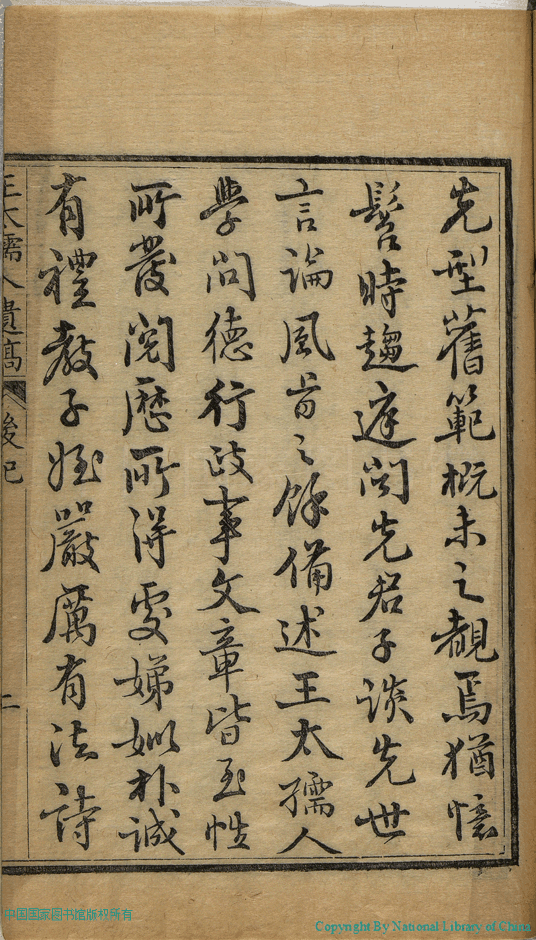 先型舊範概未之覩焉猶憶
髫時趨庭閒先君子談先世
言論風旨之餘備述王太孺人
學問德行政事文章皆至性
所發閱歷所得處娣姒朴誠
有禮教子姪嚴厲有法詩
王太孺人遺稿 後記 二
中国国家图书馆版权所有
Copyright By National Library of China